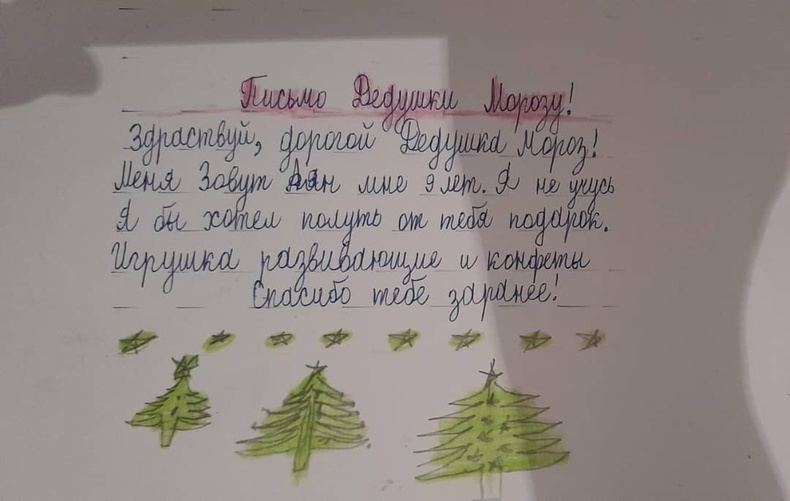 Письмо Дедушки Морозу!
Здраствуй, дорогой Дедушка Мороз!
Меня Зовут Аян мне 9 лет. Я не учусь
Я бы хотел полуть от тебя подарок.
Игрушка развивающие и конфеты
Спасибо тебе заранее!